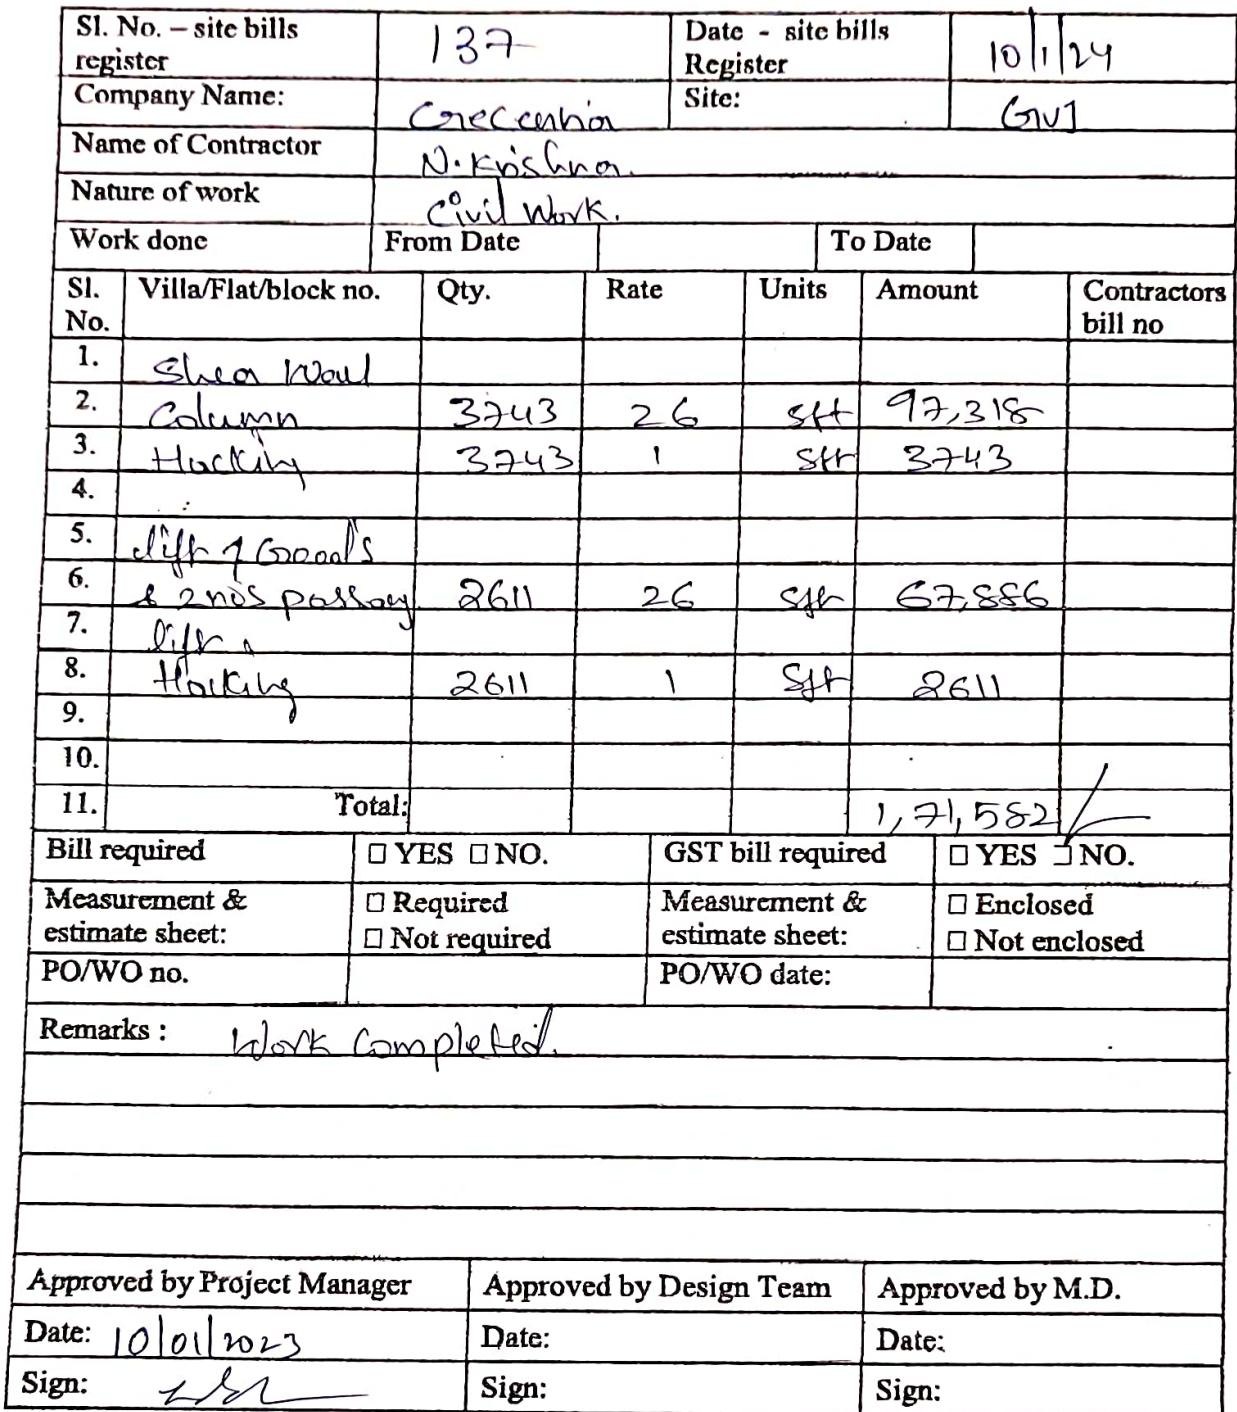 Sl. No. – site bills register 137 Date - site bills Register 10/1/24
Company Name: Crecentia Site: GVJ
Name of Contractor N. Krishna.
Nature of work Civil Work.
Work done From Date To Date
Sl. No. Villa/Flat/block no. Qty. Rate Units Amount Contractors bill no
1. Shea Wall
2. Column 3743 26 sft 97,318
3. Hacking 3743 1 sft 3743
4.
5. lift & Good's
6. & 2nos passag 2611 26 sft 67,886
7. lift
8. Hacking 2611 1 Sft 2611
9.
10.
11. Total: 1,71,582
Bill required □ YES □ NO. GST bill required □ YES □ NO.
Measurement & estimate sheet: □ Required □ Not required Measurement & estimate sheet: □ Enclosed □ Not enclosed
PO/WO no. PO/WO date:
Remarks : Work Completed.
Approved by Project Manager Approved by Design Team Approved by M.D.
Date: 10/01/2023 Date: Date:
Sign: Sign: Sign: